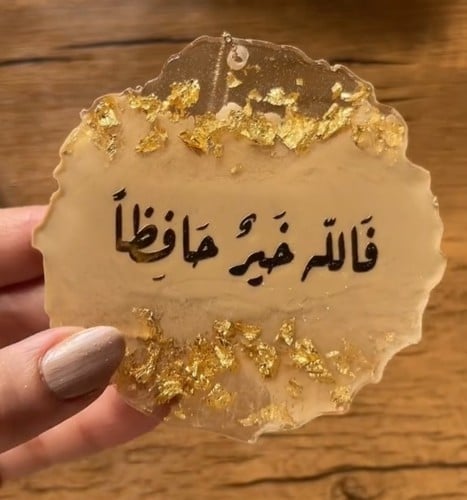 فَاللّه خَيرٌ حَافِظاً